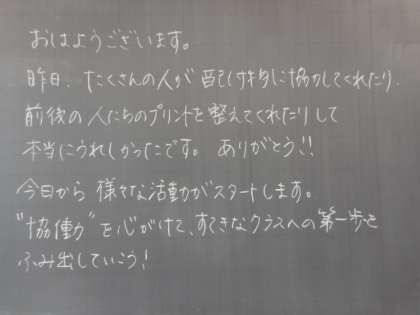 おはようございます。
昨日、たくさんの人が配り物に協力してくれたり、
前後の人たちのプリントを整えてくれたりして
本当にうれしかったです。ありがとう!!
今日から様々な活動がスタートします。
"協働"を心がけて、すてきなクラスへの第一歩を
ふみ出していこう!